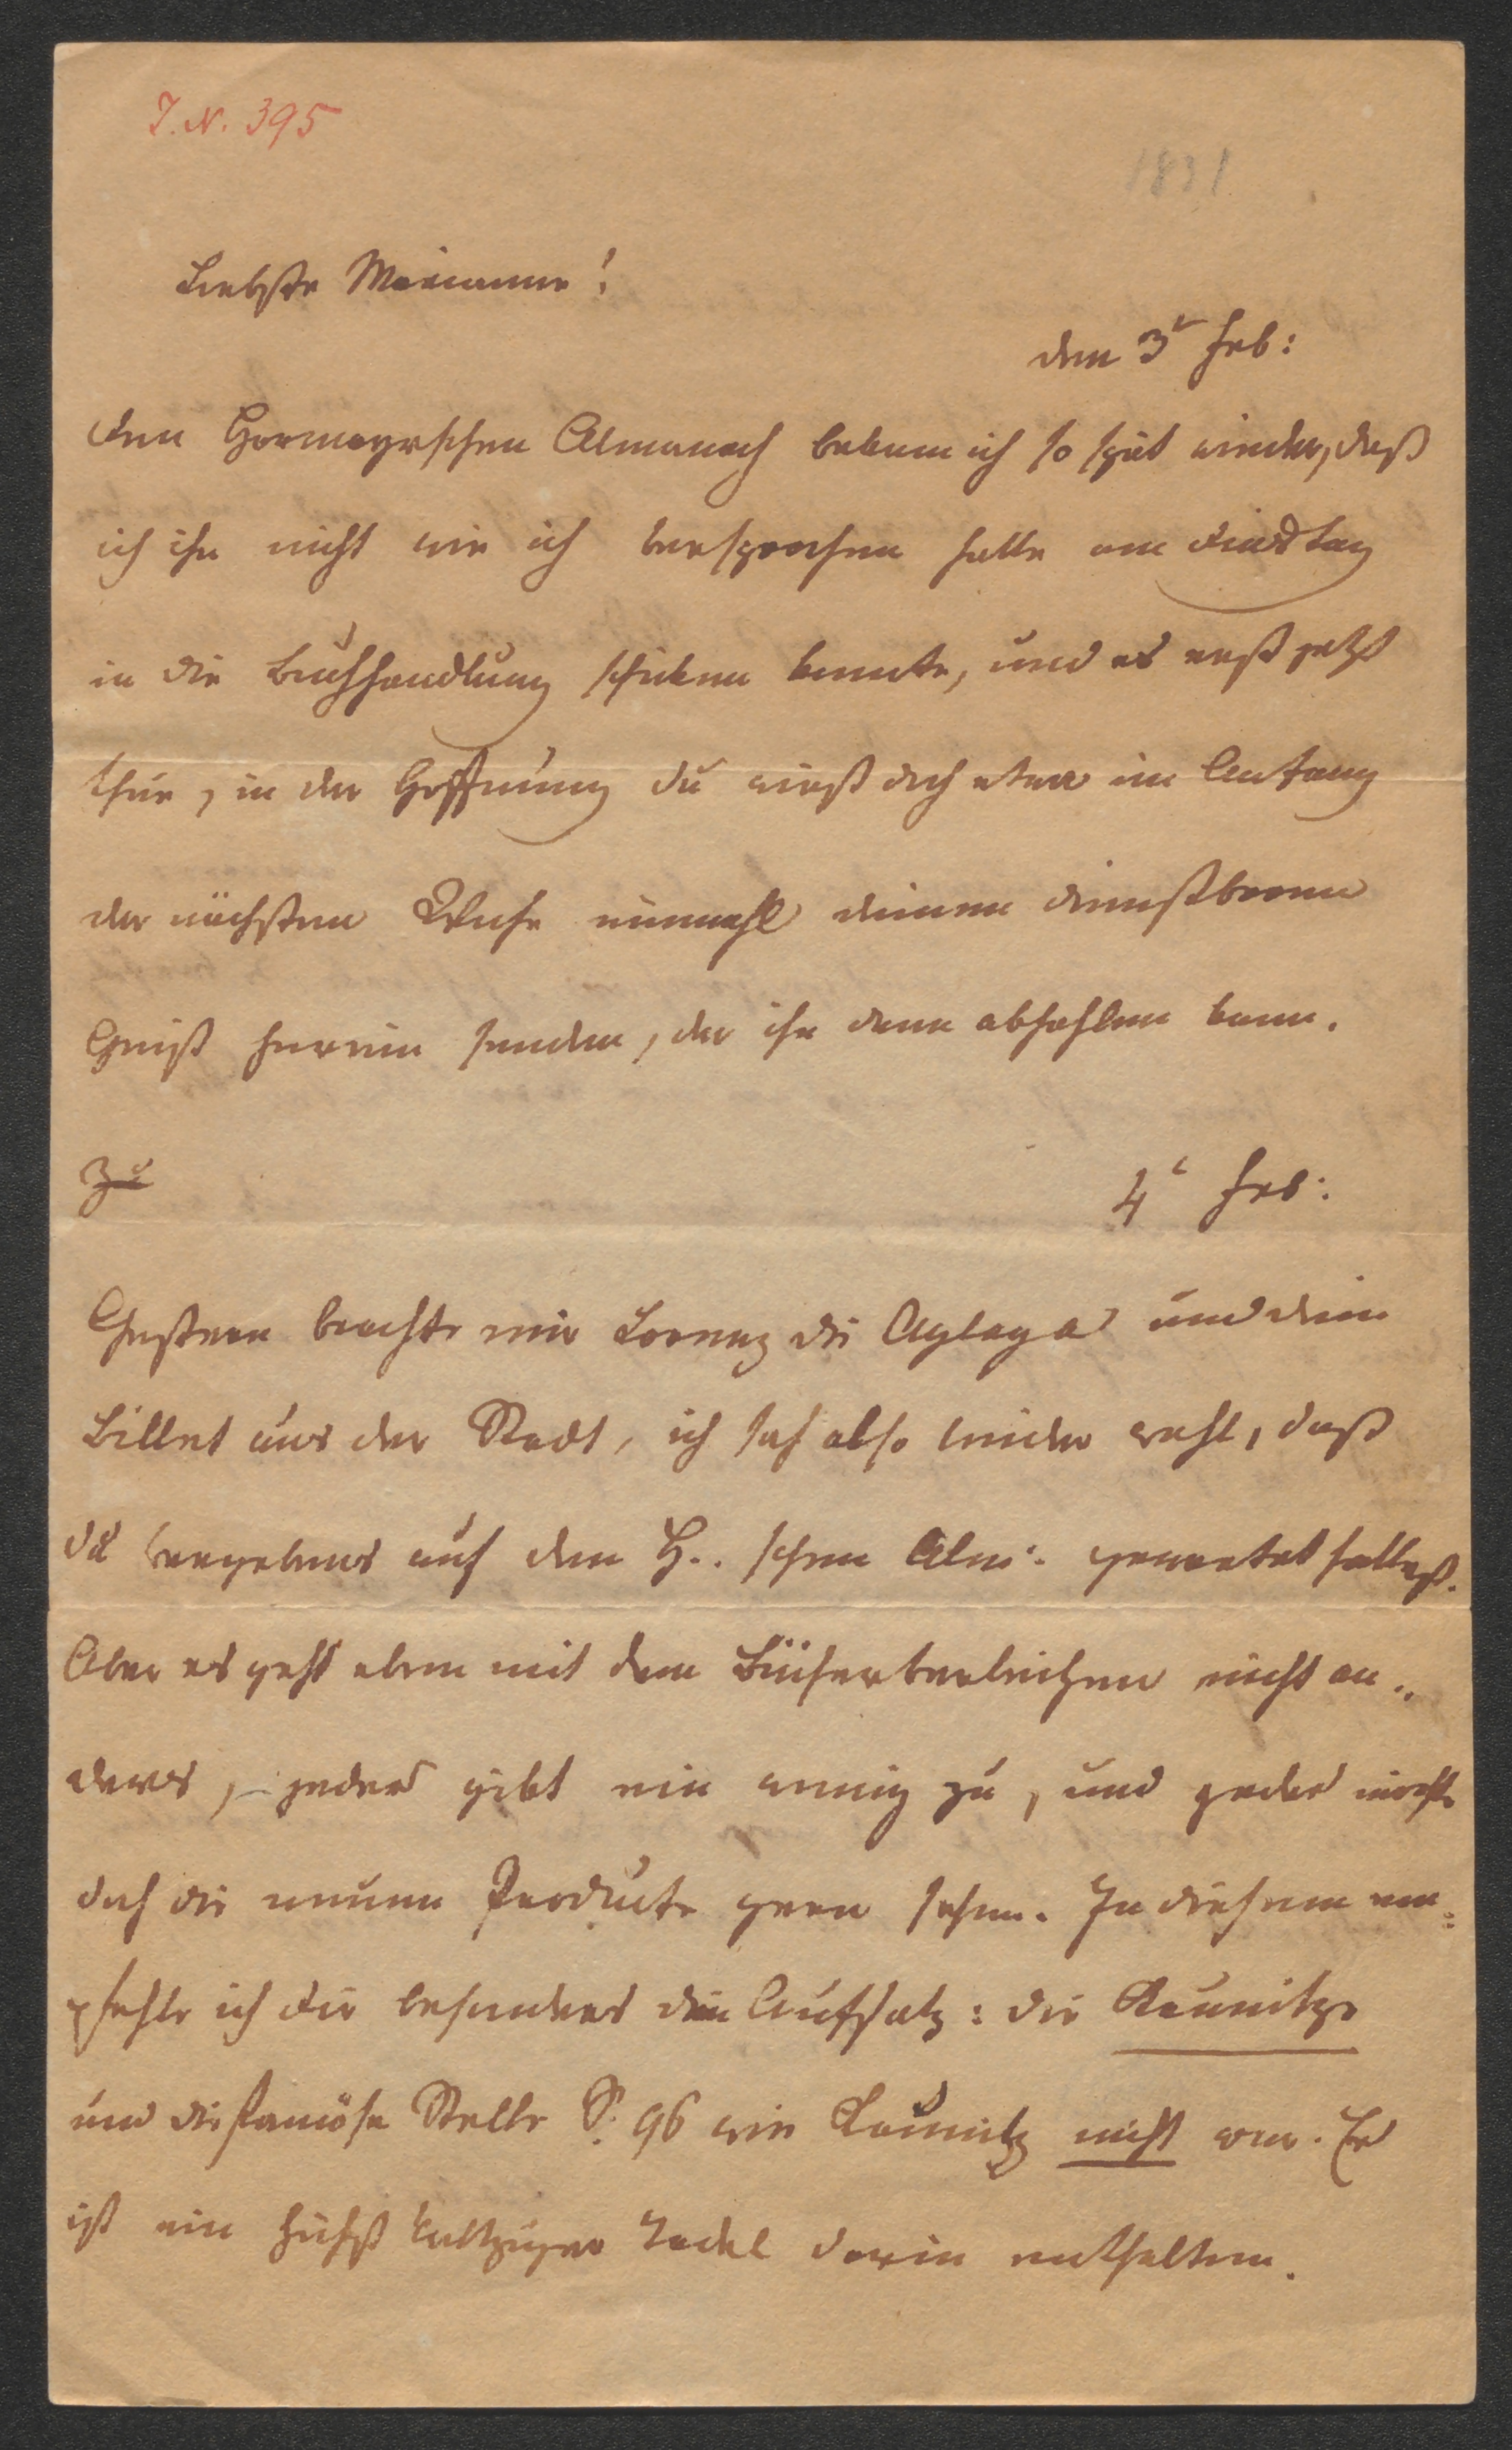 J. N. 395
1831
Liebste Marianne!
den 3t Feb:
Den Hormayrschen Almanach bekam ich so spät wieder, daß
ich ihn nicht wie ich versprochen hatte am Dinstag
in die Buchhandlung schicken konnte, und es erst jetzt
thue, in der Hoffnung du wirst doch etwa im Anfang
der nächsten Woche einmahl deinen dienstbaren
Geist herein senden, der ihn dann abhohlen kann.
Zu
4t Feb:
Gestern brachte mir Lorenz die Aglaya und dein
Billet aus der Stadt, ich sah also leider wohl, daß
du vergebens auf den H.. schen Alm: gewartet hattest.
Aber es geht eben mit dem Bücherverleihen nicht an..
ders, jeder gibt ein wenig zu, und jeder möchte
doch die neuen Producte gern sehen. In diesem em:
pfehle ich dir besonders den Aufsatz: die Kaunitze
und die famöse Stelle S: 96 wie Kaunitz nicht war. Es
ist ein höchst Tadel darin enthalten.